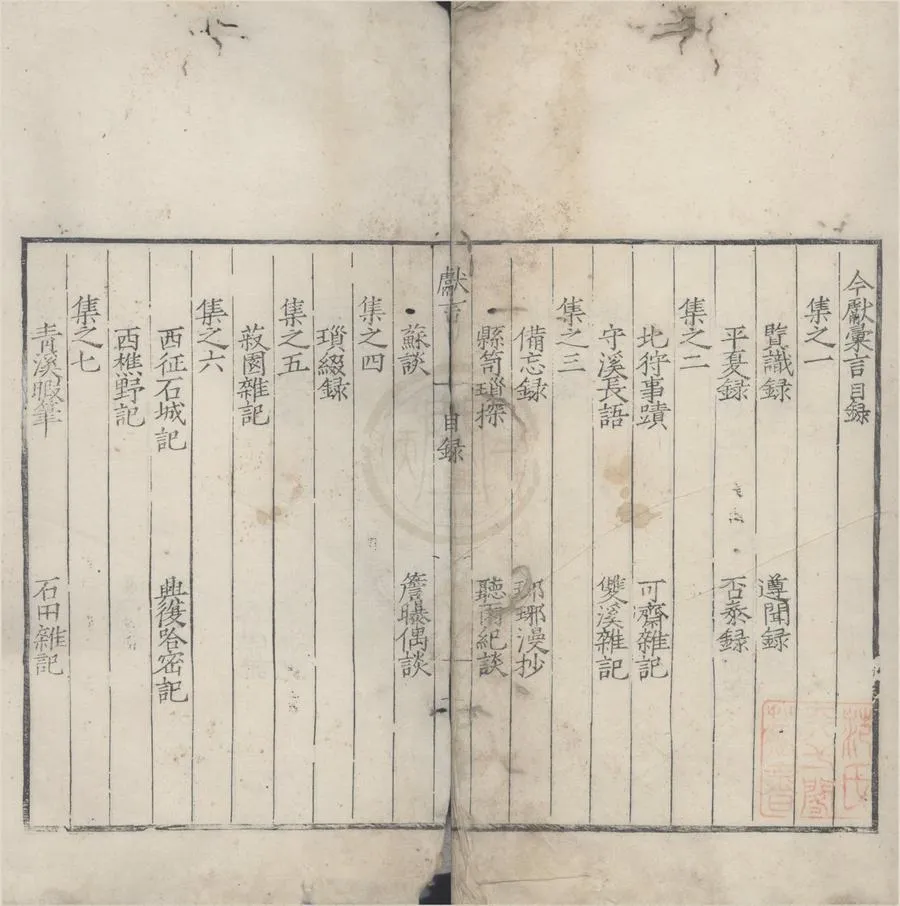 今獻彙言目録
集之一
賢識録 遵聞録
平夏録 否泰録
集之二
北狩事蹟 可齋雜記
守溪長語 雙溪雜記
集之三
備忘録 瑯琊漫抄
縣笥瑣探 聽雨紀談
獻言 目録
蘇談 簷曝偶談
集之四
瑣綴録
集之五
菽園雜記
集之六
西征石城記 興復哈密記
西樵野記
集之七
青溪暇筆 石田雜記